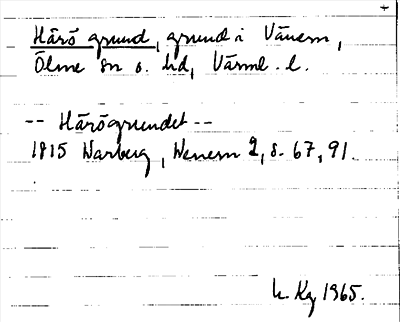 Härö grund, grund i Vänern,
Ölme sn o. hd, Värml. l.
-- Härögrundet --
1815 Warberg, Wenern 2, s. 67, 91.
1965.